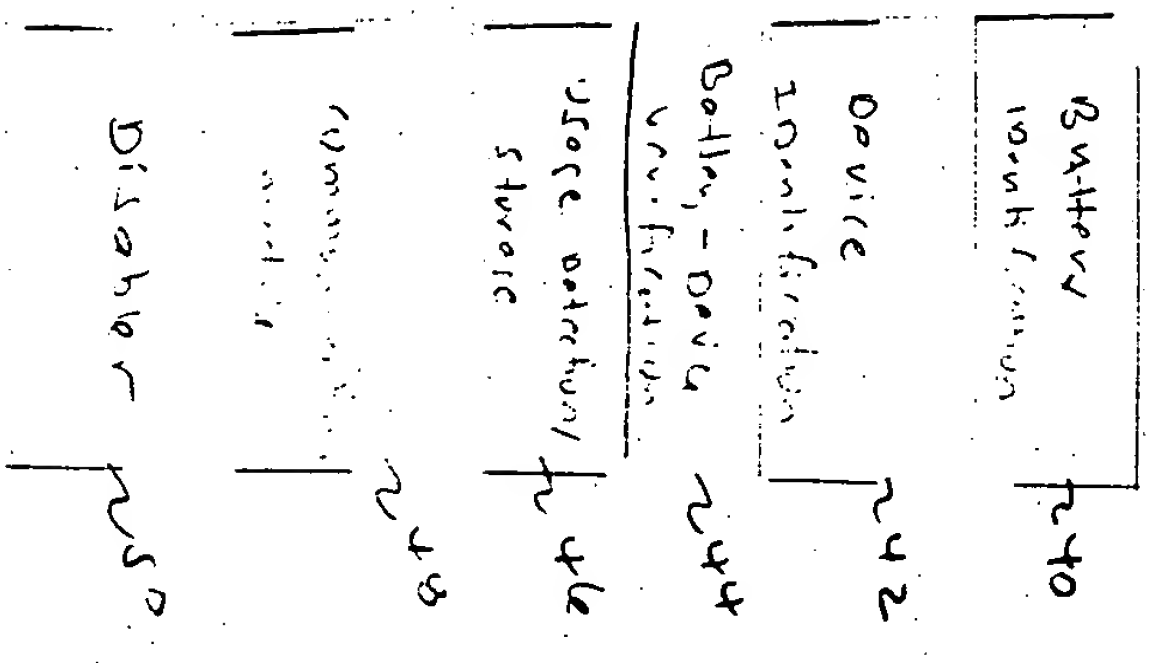 Battery
Identification
240
Device
Identification
242
Battery-Device
Verification
244
Usage Detection/
Storage
246
248
Disabler
250